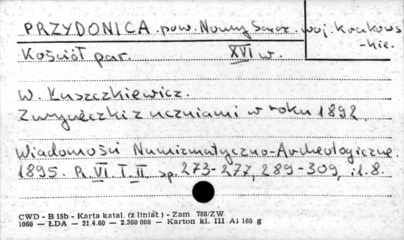 PRZYDONICA pow. Nowy Sącz. woj. Krakows
-kie.
Kościół par. XVI w.
W. Łuszczkiewicz.
Z wycieczki z uczniami w roku 1892
Wiadomości Numizmatyczno-Archeologiczne.
1895. R. VI T. II sp. 273-277, 289-309, il. 8.
CWD - B 15b - Karta katal. (z liniat) - Zam 788/ZW
1060 — ŁDA — 21.4.60 — 2.360 000 — Karton kl. III A1 160 g